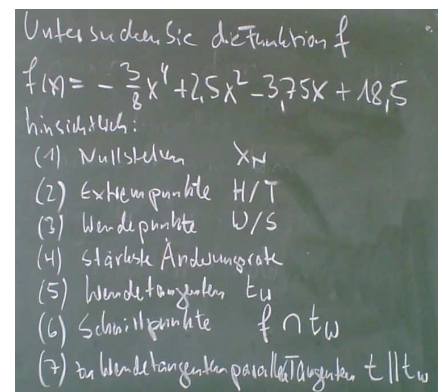 Untersuchen Sie die Funktion f
f(x) = - 3/8 x⁴ + 2,5x² - 3,75x + 18,5
hinsichtlich:
(1) Nullstellen x_N
(2) Extrempunkte H/T
(3) Wendepunkte W/S
(4) stärkste Änderungsrate
(5) Wendetangenten t_w
(6) Schnittpunkte f ∩ t_w
(7) zu Wendetangenten parallele Tangenten t || t_w